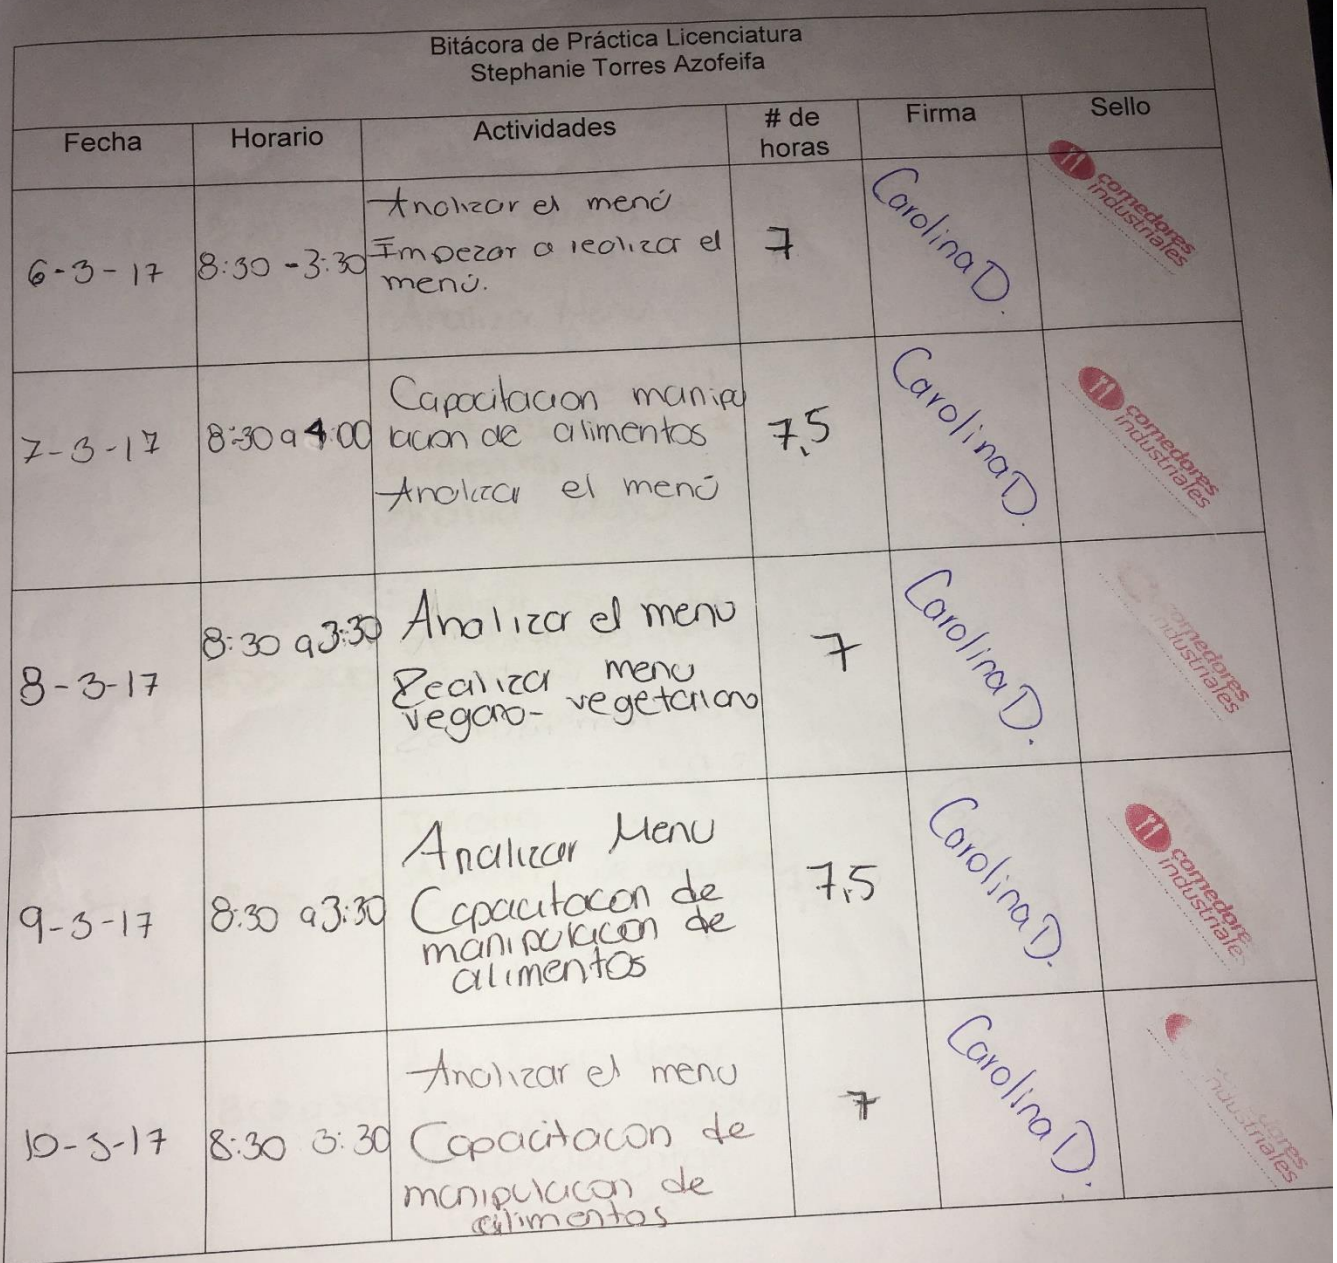 Bitácora de Práctica Licenciatura
Stephanie Torres Azofeifa
Fecha Horario Actividades # de horas Firma Sello
6-3-17 8:30 - 3:30
Analizar el menú
Impezar a realizar el
menú.
7 Carolina D.
comedores
industriales
7-3-17 8:30 a 4:00
Capacitacion manipu
lacion de alimentos
Analizar el menú
7,5 Carolina D.
comedores
industriales
8-3-17 8:30 a 3:30
Analizar el menu
Realizar menu
vegano- vegetariano
7 Carolina D.
omedores
ndustriales
9-3-17 8:30 a 3:30
Analizar Menu
Capacitacon de
manipulacion de
alimentos
7,5 Carolina D.
comedore
industriale
10-3-17 8:30 3:30
Analizar el menu
Capacitacon de
manipulacon de
alimentos
7 Carolina D.
ores
ndustriales